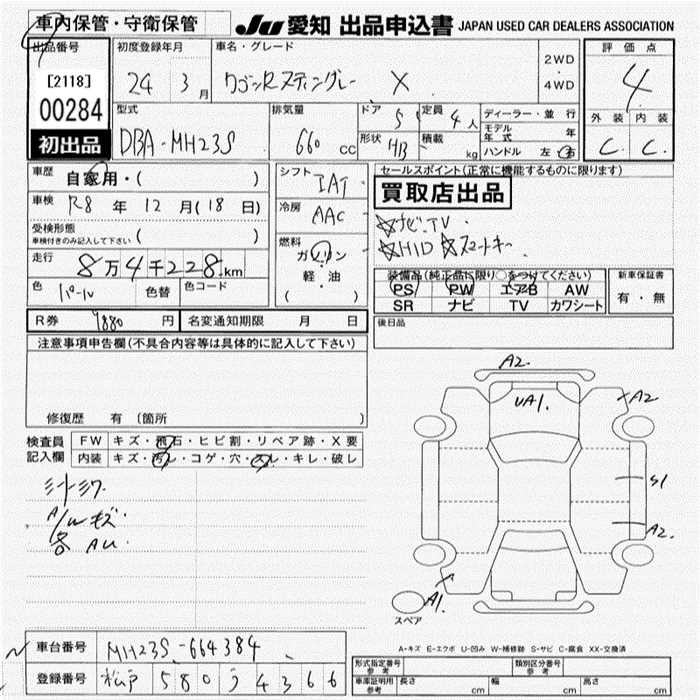 車内保管・守衛保管
JU 愛知 出品申込書 JAPAN USED CAR DEALERS ASSOCIATION
出品番号
[2118]
00284
初出品
初度登録年月
24 3月
車名・グレード
ワゴンRスティングレー X
2WD
・
4WD
評価点
4
外装 内装
C C
型式
DBA-MH23S
排気量
660 cc
ドア 5
形状 HB
定員 4人
積載 kg
ディーラー・並行
モデル年式 年
ハンドル 左・右
車歴
自家用・( )
車検 R8年 12月(18日)
受検形態
車検付きのみ記入して下さい ( )
走行 8万4千228km
色 パール 色替 色コード
シフト IAT
冷房 AAC
燃料
ガソリン
軽・油
( )
セールスポイント(正常に機能するものに限ります)
買取店出品
☆ナビ・TV
☆HID ☆スマートキー
装備品(純正品に限り○をつけてください)
PS PW エアB AW
SR ナビ TV カワシート
新車保証書
有・無
後日品
R券 9880円 名変通知期限 月 日
注意事項申告欄(不具合内容等は具体的に記入して下さい)
修復歴 有 (箇所 )
検査員記入欄
FW キズ・飛石・ヒビ割・リペア跡・X要
内装 キズ・汚レ・コゲ・穴・スレ・キレ・破レ
A/Wキズ
各 AU
A2
UA1
A2
S1
A2
A1
スペア
A-キズ E-エクボ U-凹み W-補修跡 S-サビ C-腐食 XX-交換済
車台番号 MH23S-664384
登録番号 松戸 580 う 4366
形式指定番号 参考 類別区分番号 参考
車庫証明用 参考 長さ cm 幅 cm 高さ cm